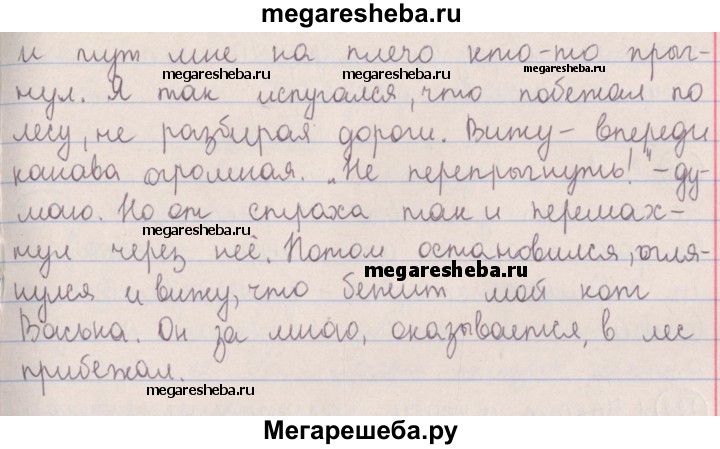 megaresheba.ru
и тут мне на плечо кто-то прыг-
megaresheba.ru megaresheba.ru
нул. Я так испугался, что побежал по
лесу, не разбирая дороги. Вижу - впереди
канава огромная. „Не перепрыгнуть!" - ду-
маю. Но от страха так и перемах-
megaresheba.ru
нул через неё. Потом остановился, огля-
megaresheba.ru
нулся и вижу, что бежит мой кот
Васька. Он за мною, оказывается, в лес
прибежал.
megaresheba.ru
Мегарешеба.ру